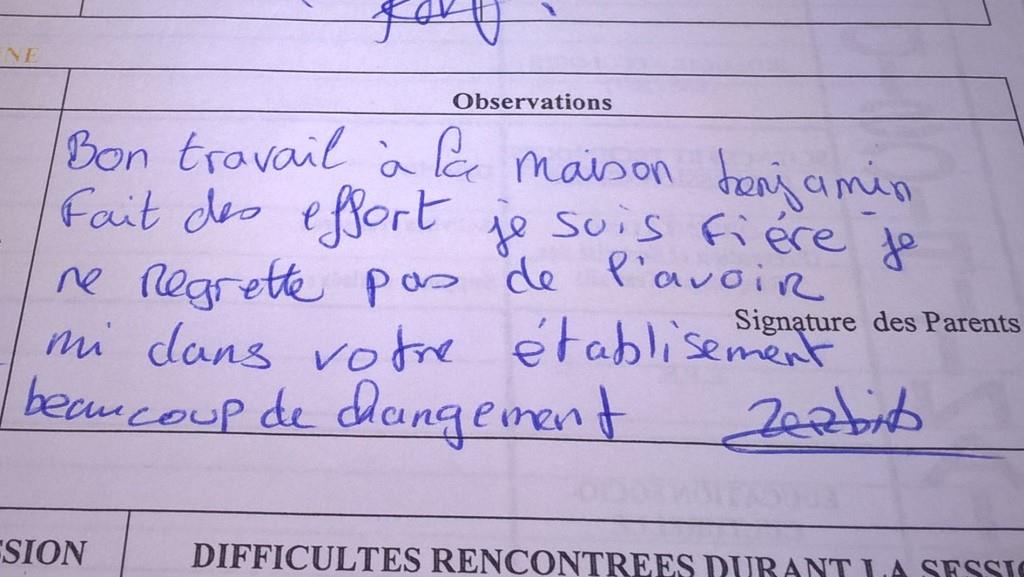 NE
Observations
Bon travail à la maison benjamin
Fait des effort je suis fière je
ne Regrette pas de l'avoir
Signature des Parents
mi dans votre établisement
beaucoup de changement
SSION
DIFFICULTES RENCONTREES DURANT LA SESSI